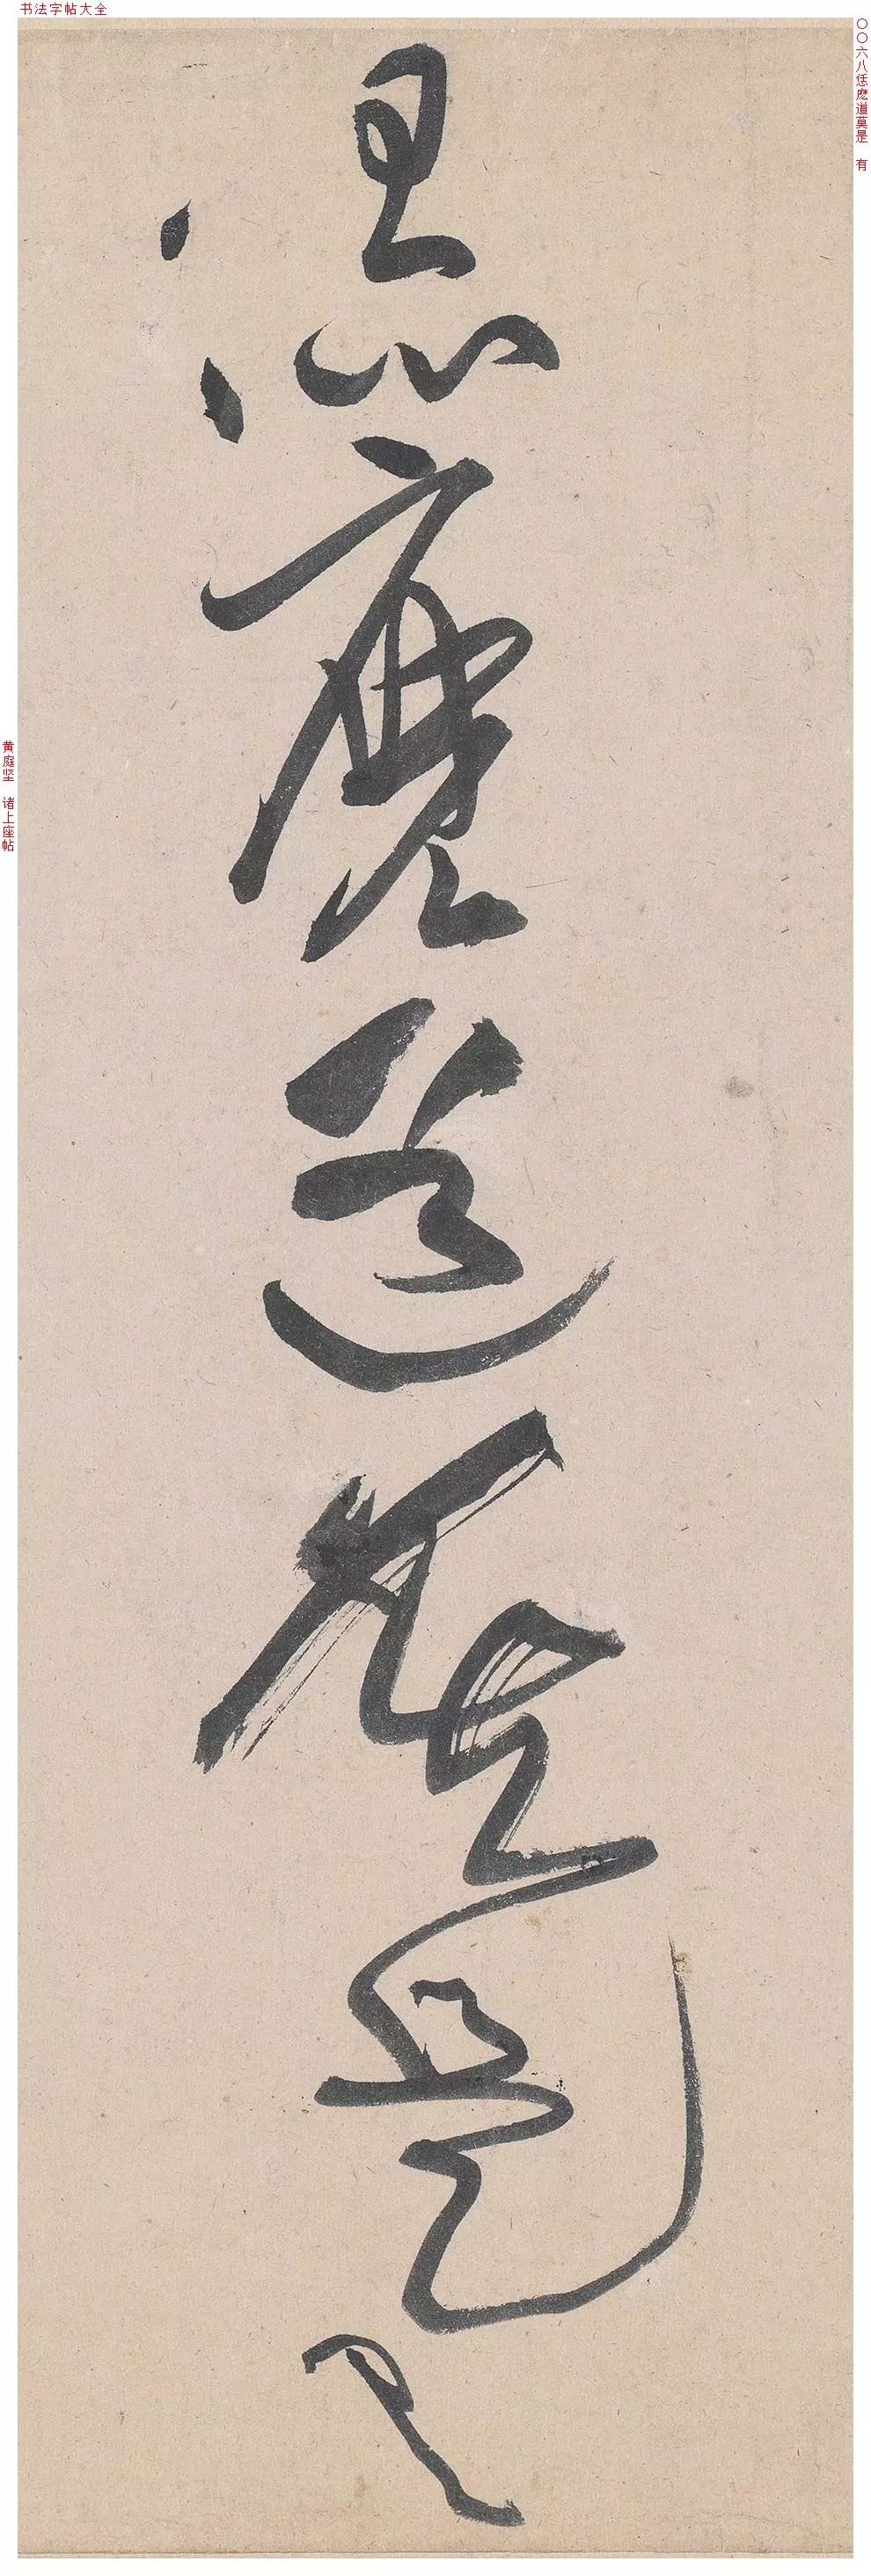 书法字帖大全
〇〇六八恁麽道莫是 有
恁麽道莫是
黄庭坚 诸上座帖